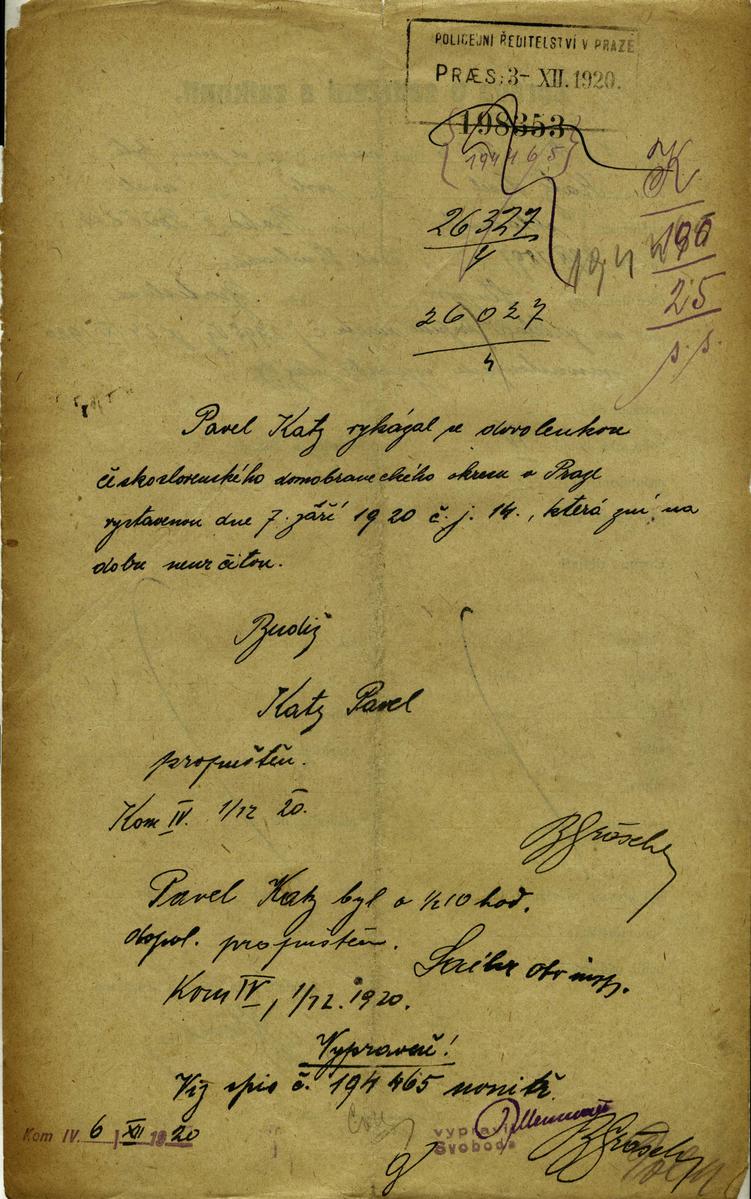 POLICEJNÍ ŘEDITELSTVÍ V PRAZE
PRÆS: 3- XII. 1920.
198353
194465
26327
4
26027
4
K
190
25
p. p.
Pavel Katz vykázal se dovolenkou
československého domobraneckého okresu v Praze
vystavenou dne 7. září 1920 č. j. 14., která zní na
dobu neurčitou.
Budiž
Katz Pavel
propuštěn.
Kom IV. 1/12 20.
Pavel Katz byl o ½10 hod.
dopol. propuštěn.
Kom IV, 1/12. 1920.
Vypraveně!
Viz spis č. 194465
Kom IV. 6 / XII 1920
vypravil
Svoboda